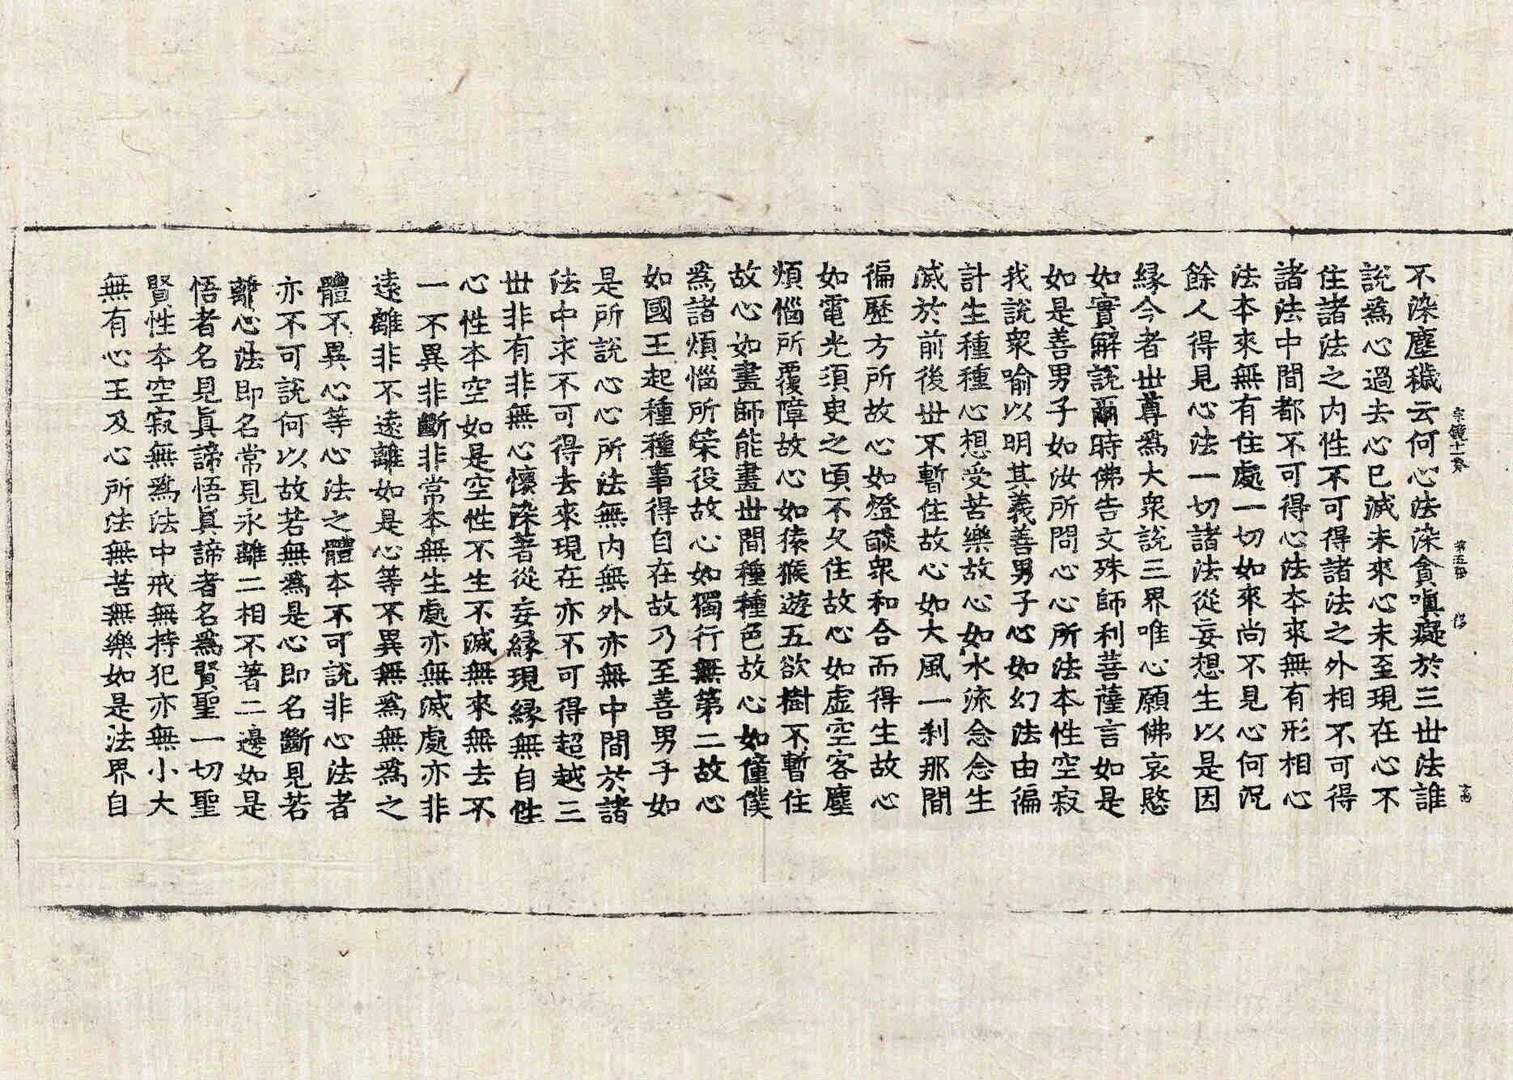 不染塵穢云何心法染貪嗔癡於三世法誰
宗鏡十卷 第五張
說爲心過去心已滅未來心未至現在心不
住諸法之内性不可得諸法之外相不可得
諸法中間都不可得心法本來無有形相心
法本來無有住處一切如來尚不見心何况
餘人得見心法一切諸法從妄想生以是因
緣今者世尊爲大衆說三界唯心願佛哀愍
如實解說爾時佛告文殊師利菩薩言如是
如是善男子如汝所問心心所法本性空寂
我說衆喻以明其義善男子心如幻法由徧
計生種種心想受苦樂故心如水流念念生
滅於前後世不暫住故心如大風一刹那間
徧歷方所故心如燈燄衆和合而得生故心
如電光須臾之頃不久住故心如虛空客塵
煩惱所覆障故心如猿猴遊五欲樹不暫住
故心如畫師能畫世間種種色故心如僮僕
爲諸煩惱所榮役故心如獨行無第二故心
如國王起種種事得自在故乃至善男子如
是所說心心所法無内無外亦無中間於諸
法中求不可得去來現在亦不可得超越三
世非有非無心懷染著從妄緣現緣無自性
心性本空如是空性不生不滅無來無去不
一不異非斷非常本無生處亦無滅處亦非
遠離非不遠離如是心等不異無爲無爲之
體不異心等心法之體本不可說非心法者
亦不可說何以故若無爲是心即名斷見若
離心法即名常見永離二相不著二邊如是
悟者名見真諦悟真諦者名爲賢聖一切聖
賢性本空寂無爲法中戒無持犯亦無小大
無有心王及心所法無苦無樂如是法界自